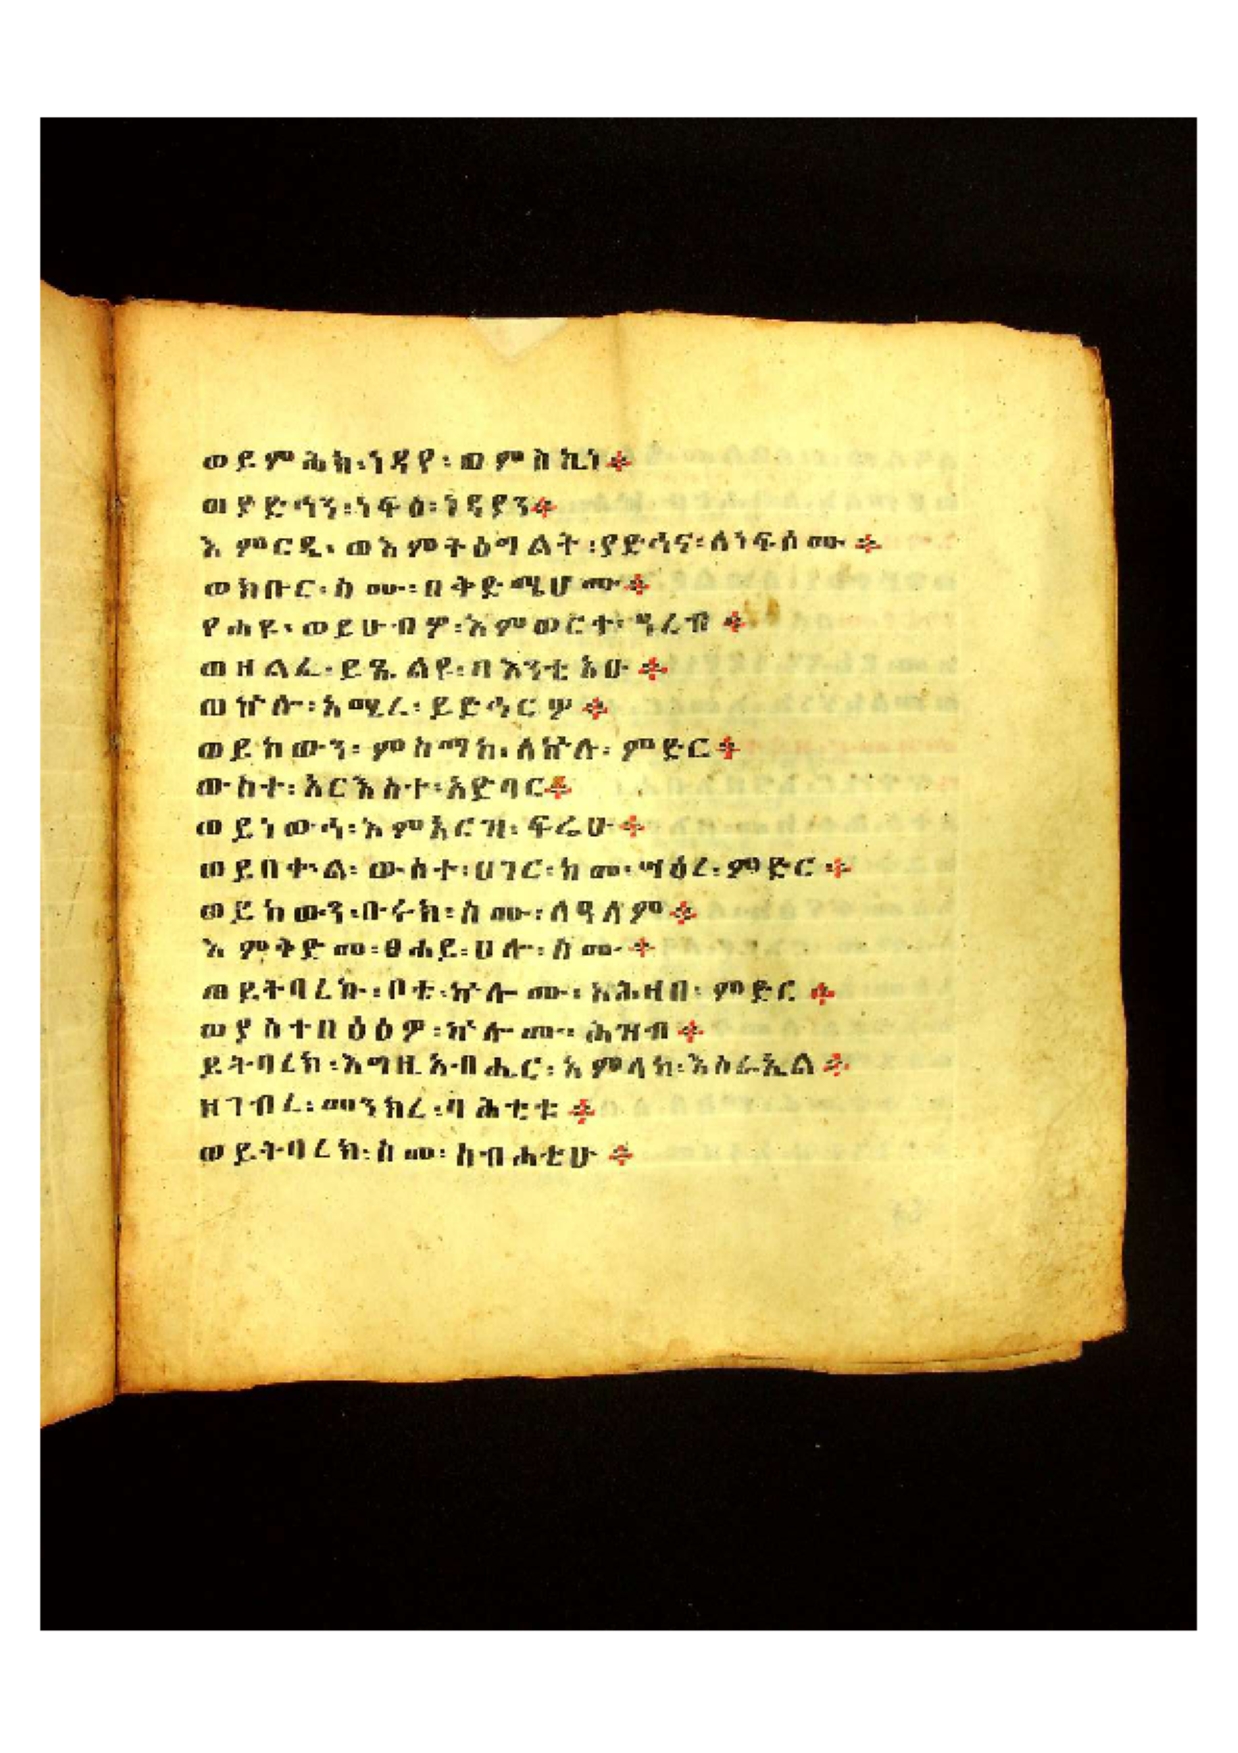 ወይምሕክ፡ነዳየ፡ወምስኪነ፨
ወያድኅን፡ነፍሰ፡ነዳያን፨
እምርዴ፡ወእምትዕግልት፡ያድኅና፡ለነፍሰሙ፨
ወክቡር፡ስሙ፡በቅድሜሆሙ፨
የሐዩ፡ወይሁብዎ፡እምወርቀ፡ዓረብ፨
ወዘልፈ፡ይጼልዩ፡በእንቲአሁ፨
ወኵሎ፡አሚረ፡ይድኅርዎ፨
ወይከውን፡ምስማክ፡ለኵሉ፡ምድር፨
ውስተ፡አርእስተ፡አድባር፨
ወይነውኅ፡እምአርዝ፡ፍሬሁ፨
ወይበቍል፡ውስተ፡ሀገር፡ከመ፡ሣዕረ፡ምድር፨
ወይከውን፡ቡሩክ፡ስሙ፡ለዓለም፨
እምቅድመ፡ፀሐይ፡ሀሎ፡ስሙ፨
ወይትባረኩ፡ቦቱ፡ኵሎሙ፡አሕዛበ፡ምድር፨
ወያስተበፅዕዎ፡ኵሎሙ፡ሕዝብ፨
ይትባረክ፡እግዚአብሔር፡አምላከ፡እስራኤል፨
ዘገብረ፡መንክረ፡ባሕቲቱ፨
ወይትባረክ፡ስመ፡ስብሐቲሁ፨